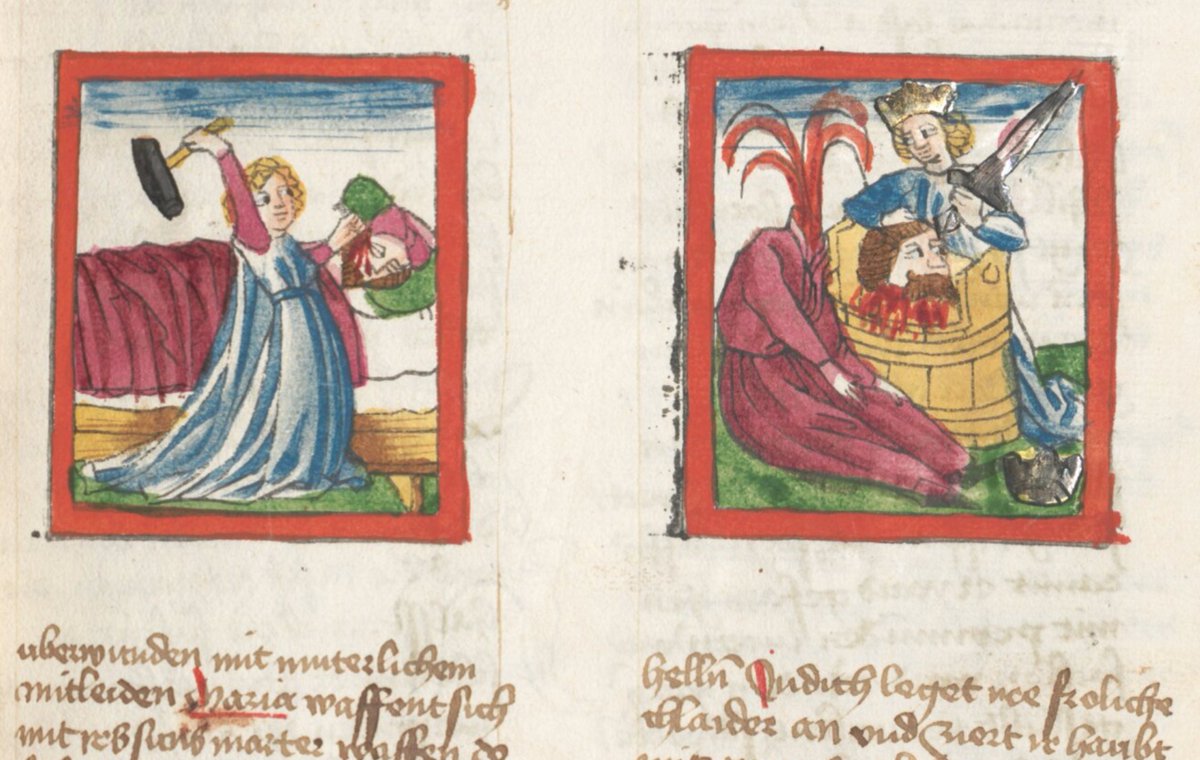 uberwunden mit muterlichem
mitleiden Maria waffent sich
mit xp̄s sicus marter waffen do
hellñ Judith leget ire froliche
chlaider an vnd Zuert ir haubt